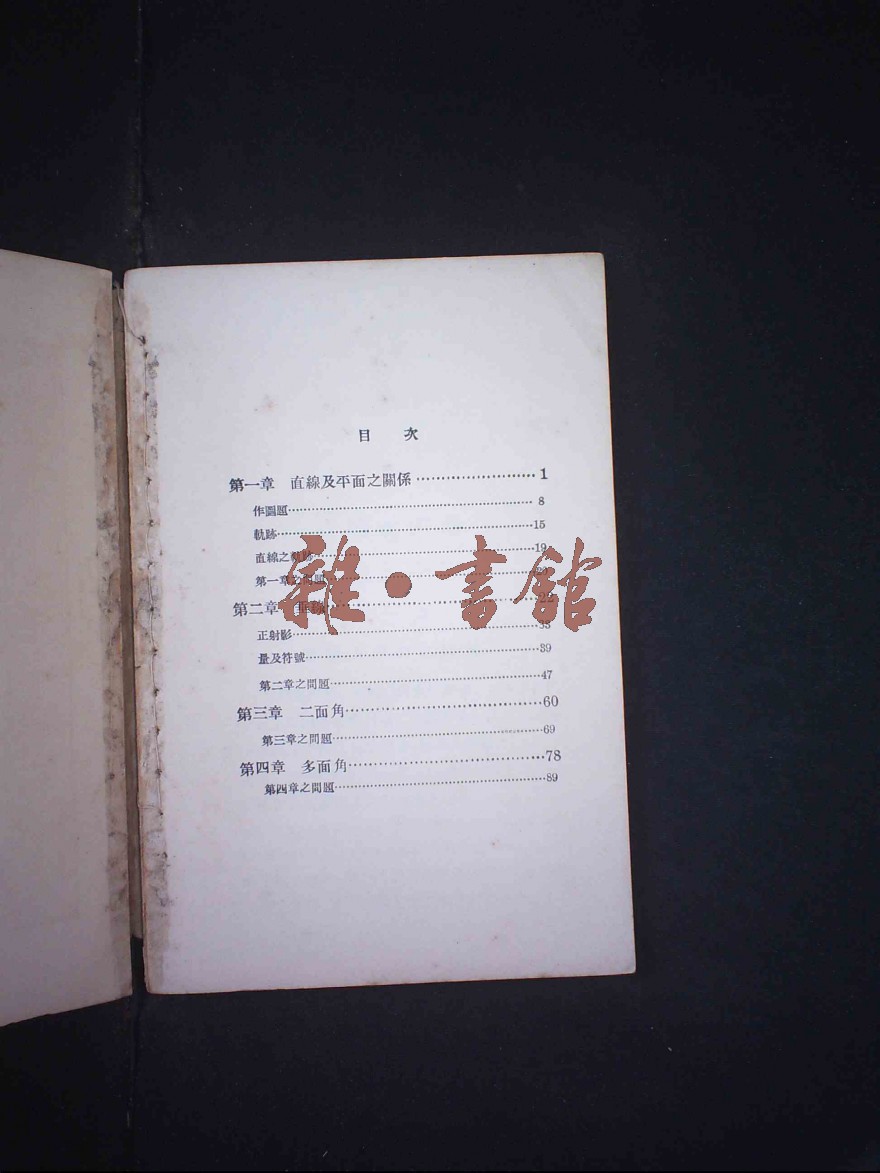 目 次
第一章 直線及平面之關係 1
作圖題 8
軌跡 15
直線之軌跡 19
第一章之問題
第二章
正射影
量及符號 39
第二章之問題 47
第三章 二面角 60
第三章之問題 69
第四章 多面角 78
第四章之問題 89
雜·書館